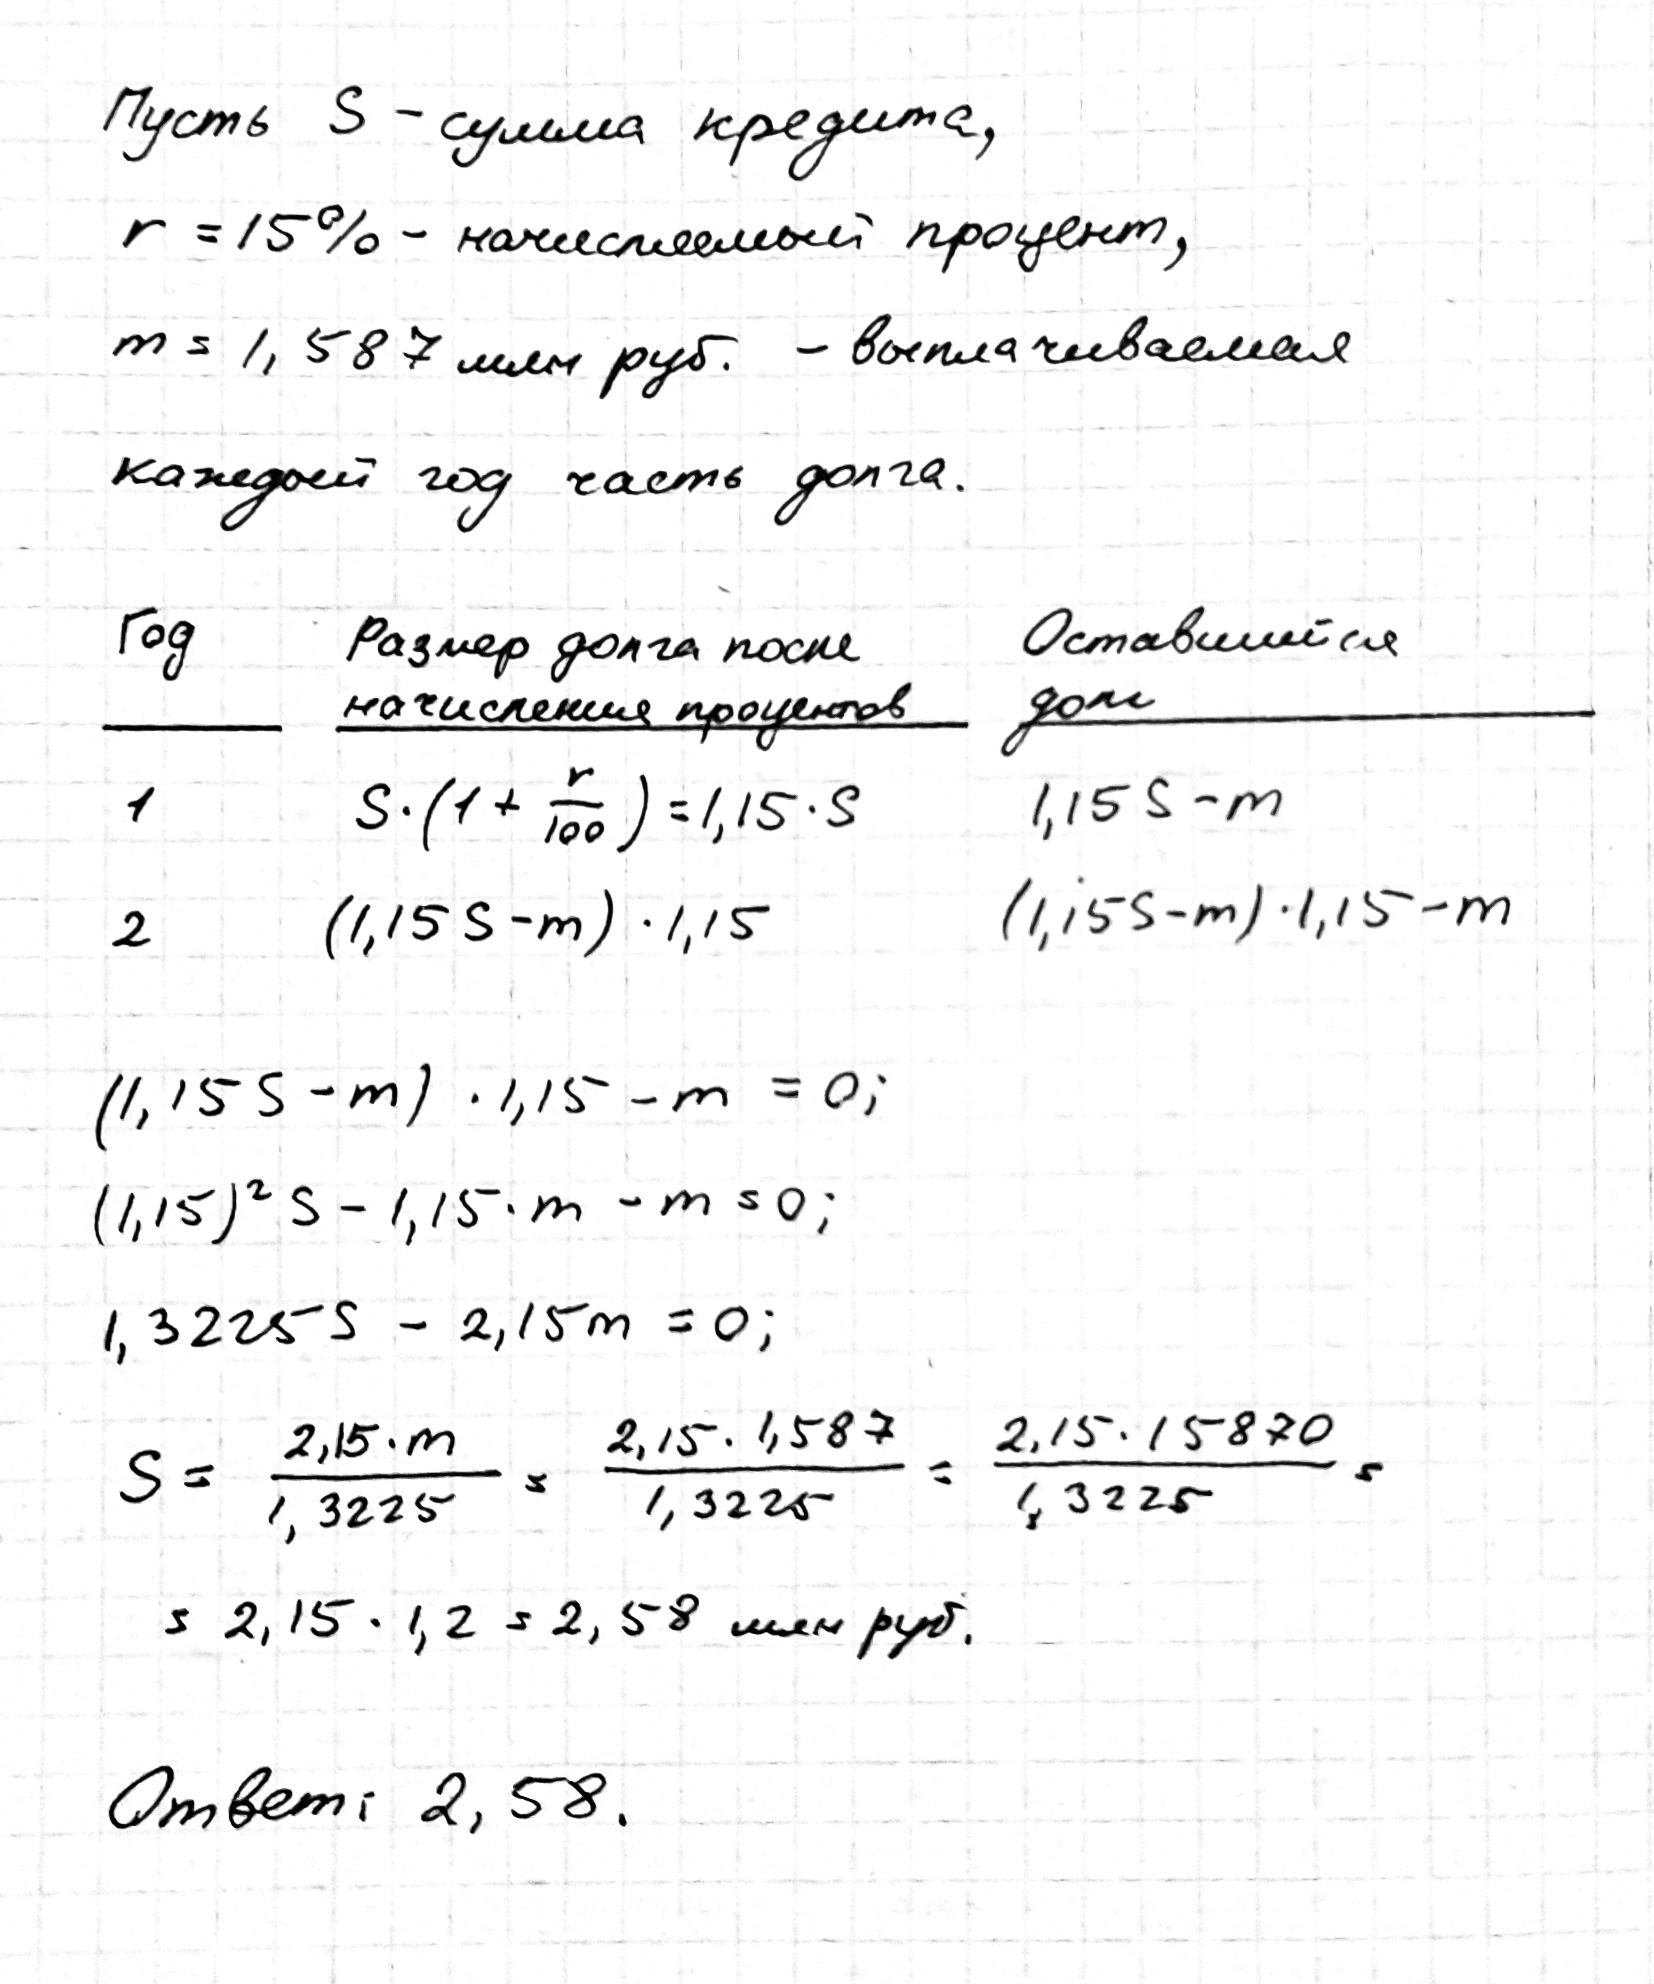 Пусть S - сумма кредита,
r = 15% - начисляемый процент,
m = 1,587 млн руб. - выплачиваемая
каждый год часть долга.
Год Размер долга после начисления процентов Оставшийся долг
1 S·(1 + r/100) = 1,15·S 1,15S - m
2 (1,15S - m)·1,15 (1,15S - m)·1,15 - m
(1,15S - m)·1,15 - m = 0;
(1,15)²S - 1,15·m - m = 0;
1,3225S - 2,15m = 0;
S = 2,15·m/1,3225 = 2,15·1,587/1,3225 = 2,15·15870/1,3225 =
= 2,15·1,2 = 2,58 млн руб.
Ответ: 2,58.